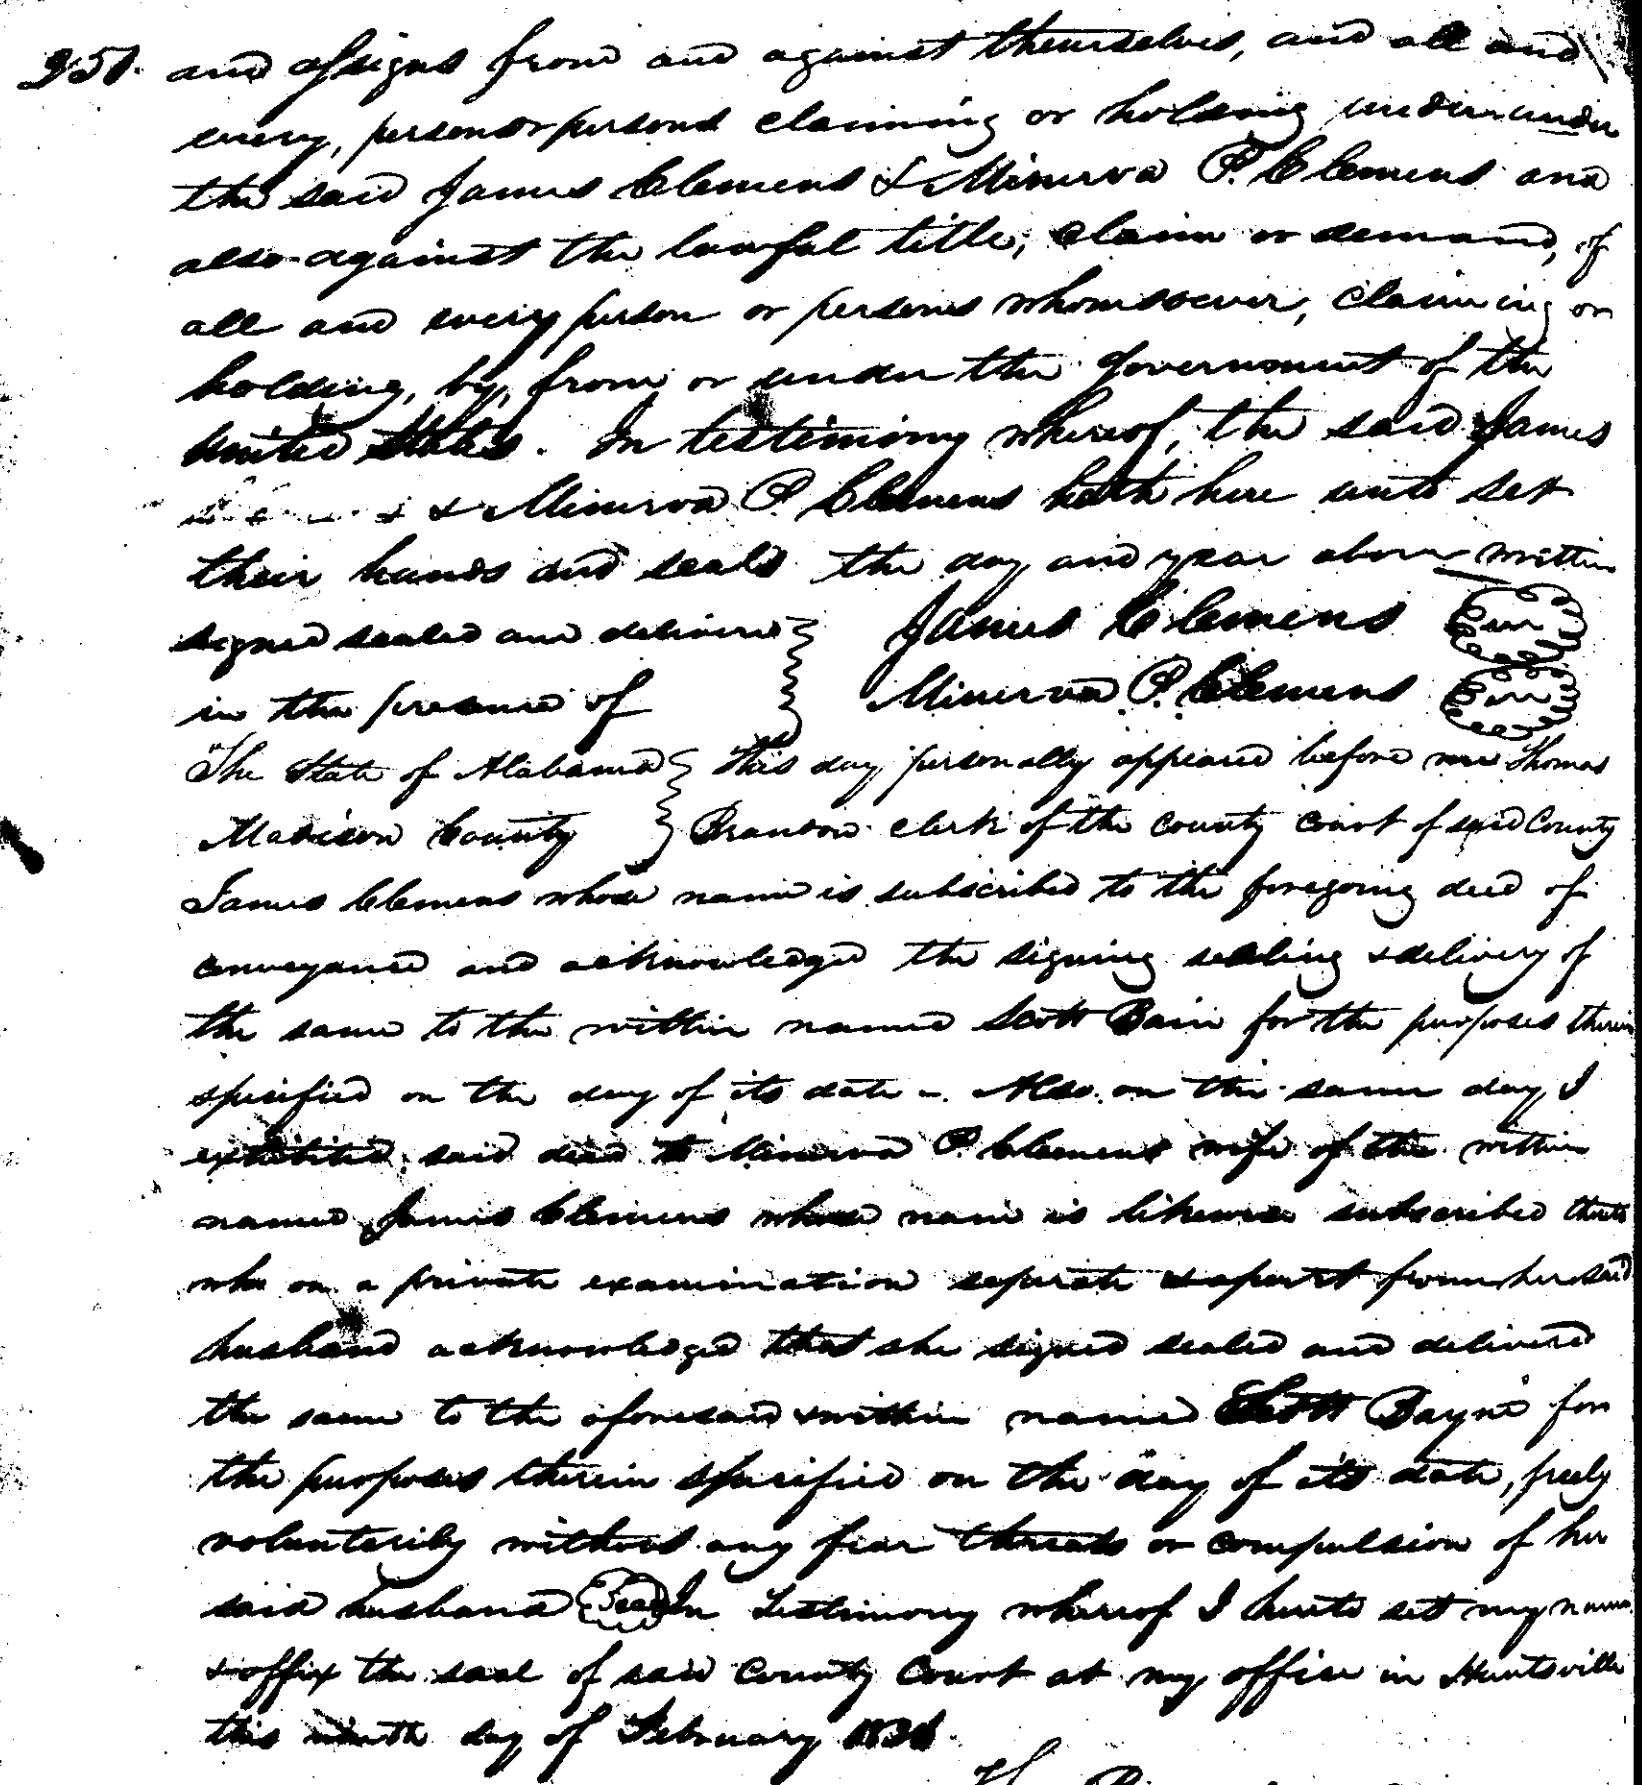 and assigns from and against themselves, and all and
every, person or persons claiming or holding under under
the said James Clemens & Minerva P. Clemens and
also against the lawful title, claim or demand, of
all and every person or persons whomsoever, claiming or
holding, by, from or under the government of the
United States. In testimony whereof, the said James
& Minerva P. Clemens hath here unto set
their hands and seals the day and year above written
signed sealed and delivered James Clemens Seal
in the presence of Minerva P. Clemens Seal
The State of Alabama This day personally appeared before me Thomas
Madison County Brandon clerk of the county court of said County
James Clemens whose name is subscribed to the foregoing deed of
conveyance and acknowledged the signing sealing & delivery of
the same to the within named Scott Bain for the purposes therein
specified on the day of its date -. Also on the same day I
exhibited said deed to Minerva P. Clemens wife of the within
named James Clemens whose name is likewise subscribed thereto
who on a private examination separate & apart from her said
husband acknowledged that she signed sealed and delivered
the same to the aforesaid & within named Scott Bayne for
the purposes therein specified on the day of its date, freely
voluntarily without any fear threats or compulsion of her
said husband Seal In Testimony whereof I hereto set my name
& affix the seal of said County Court at my office in Huntsville
this ninth day of February